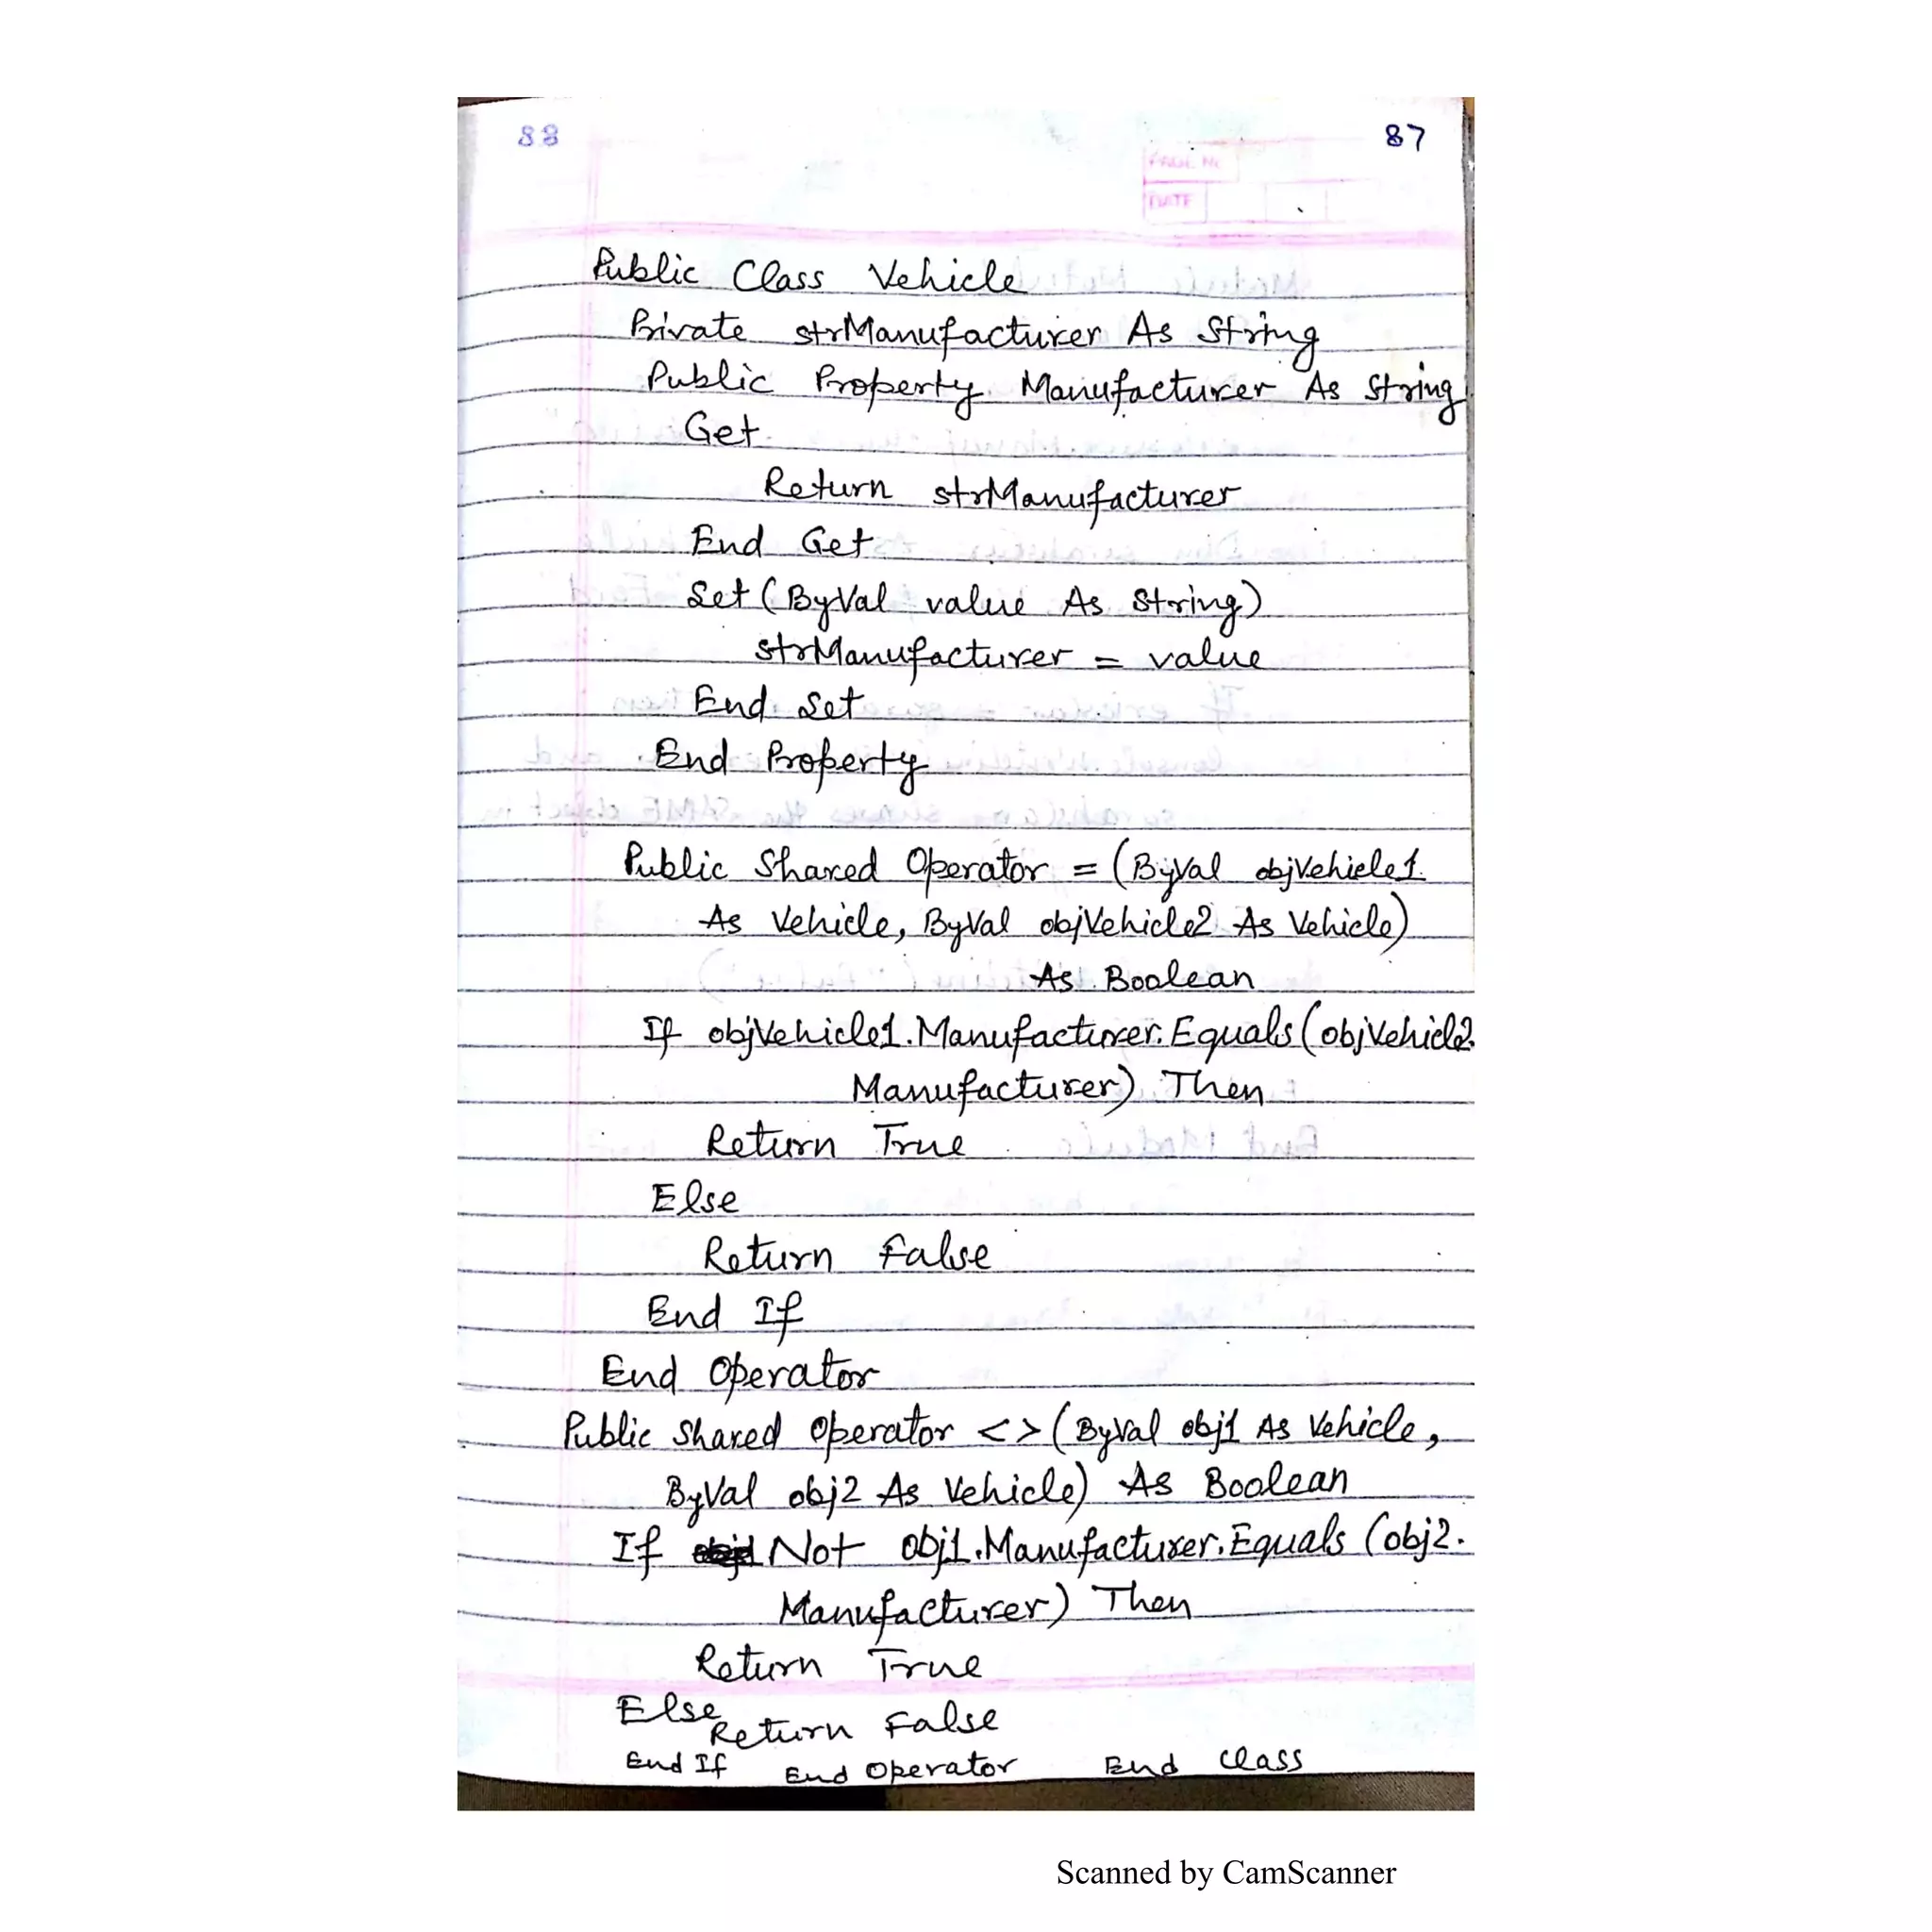 88 87
PAGE No
DATE
Public Class Vehicle
Private strManufacturer As String
Public Property Manufacturer As String
Get
Return strManufacturer
End Get
Set (ByVal value As String)
strManufacturer = value
End Set
End Property
Public Shared Operator = (ByVal objVehicle1
As Vehicle, ByVal objVehicle2 As Vehicle)
As Boolean
If objVehicle1.Manufacturer.Equals (objVehicle2.
Manufacturer) Then
Return True
Else
Return False
End If
End Operator
Public Shared Operator <> (ByVal obj1 As Vehicle,
ByVal obj2 As Vehicle) As Boolean
If Not obj1.Manufacturer.Equals (obj2.
Manufacturer) Then
Return True
Else
Return False
End If End Operator End Class
Scanned by CamScanner